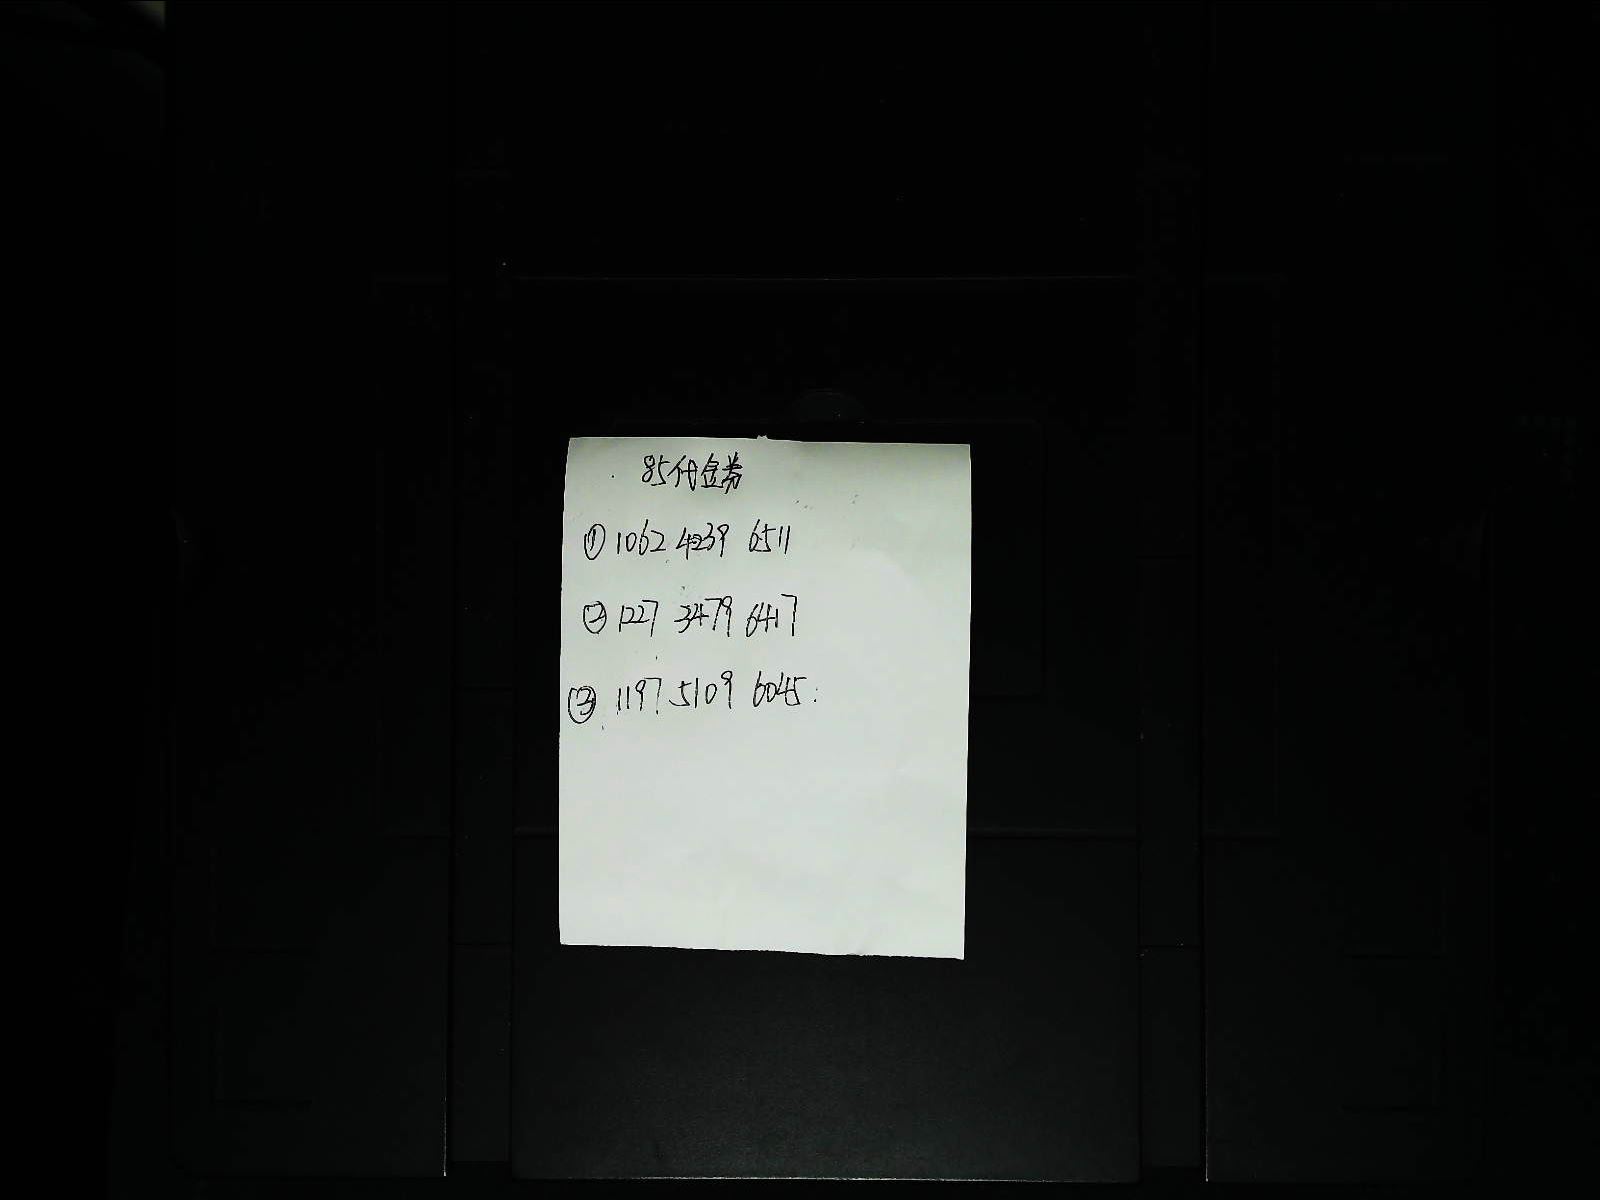 85代金券
① 1062 4239 6511
② 1227 3479 6417
③ 1197 5109 6045